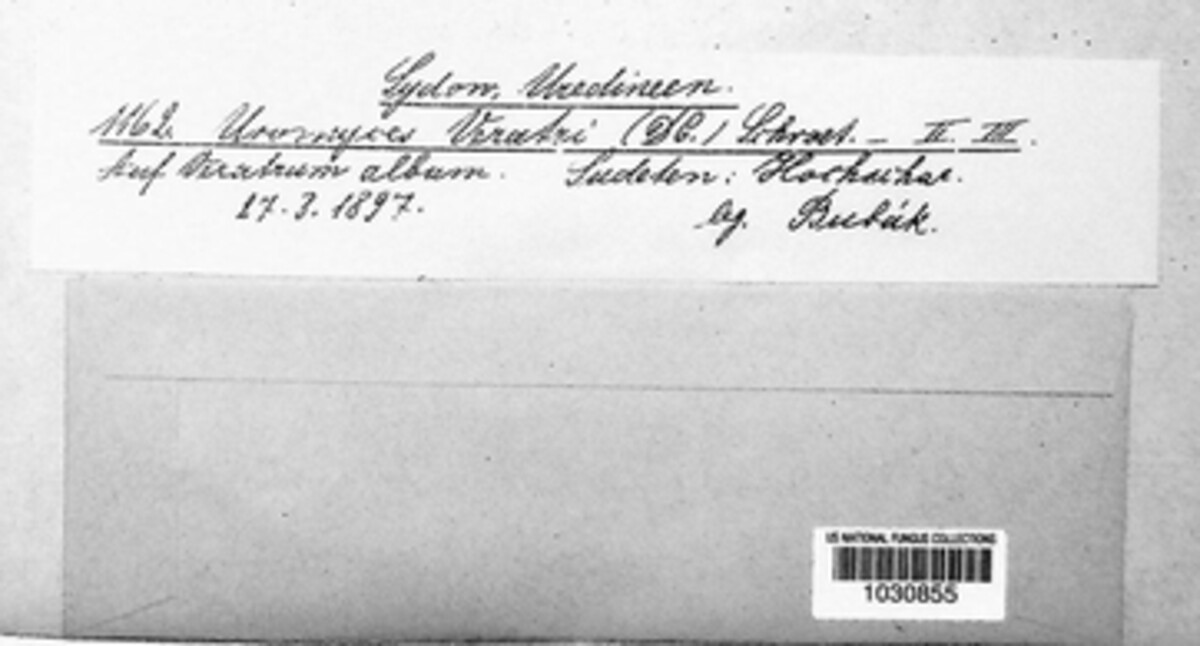 Sydow, Uredineen.
1162. Uromyces Veratri (DC.) Schroet. — II III.
Auf Veratrum album. Sudeten: Hochschar.
17.3.1897. lg. Bubák.
US NATIONAL FUNGUS COLLECTIONS
1030855